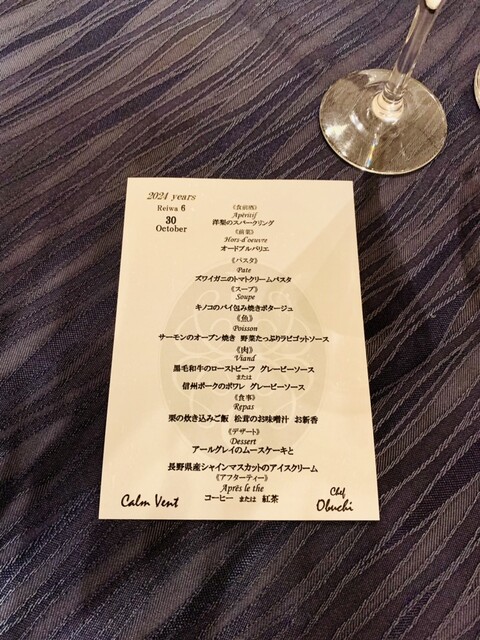 2024 years
Reiwa 6
30
October
《食前酒》
Apéritif
洋梨のスパークリング
《前菜》
Hors-d'oeuvre
オードブルバリエ
《パスタ》
Pate
ズワイガニのトマトクリームパスタ
《スープ》
Soupe
キノコのパイ包み焼きポタージュ
《魚》
Poisson
サーモンのオーブン焼き 野菜たっぷりラビゴットソース
《肉》
Viand
黒毛和牛のローストビーフ グレービーソース
または
信州ポークのポワレ グレービーソース
《食事》
Repas
栗の炊き込みご飯 松茸のお味噌汁 お新香
《デザート》
Dessert
アールグレイのムースケーキと
長野県産シャインマスカットのアイスクリーム
《アフターティー》
Après le the
コーヒー または 紅茶
Calm Vent
Chef
Obuchi